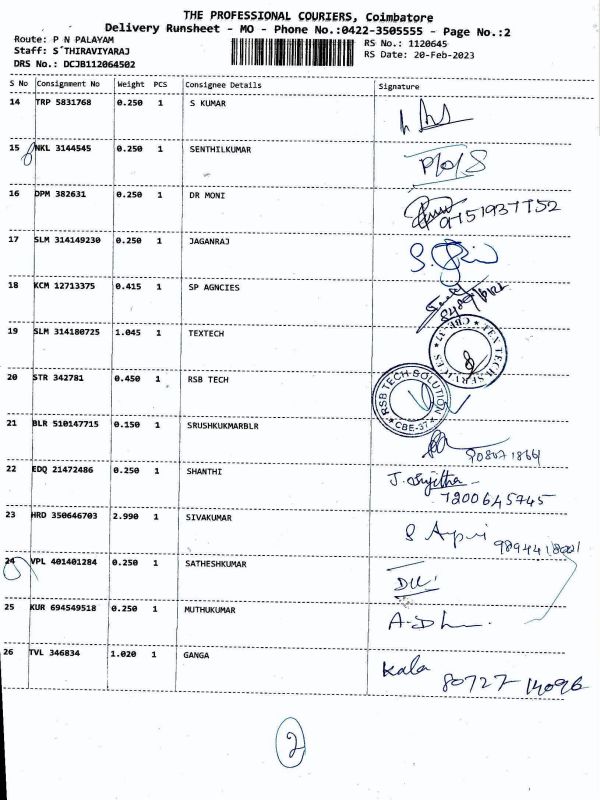 THE PROFESSIONAL COURIERS, Coimbatore
Delivery Runsheet - MO - Phone No.:0422-3505555 - Page No.:2
Route: P N PALAYAM
Staff: S THIRAVIYARAJ
DRS No.: DCJB112064502
RS No.: 1120645
RS Date: 20-Feb-2023
S No Consignment No Weight PCS Consignee Details Signature
14 TRP 5831768 0.250 1 S KUMAR
15 NKL 3144545 0.250 1 SENTHILKUMAR
16 DPM 382631 0.250 1 DR MONI 9751937752
17 SLM 314149230 0.250 1 JAGANRAJ
18 KCM 12713375 0.415 1 SP AGNCIES
19 SLM 314180725 1.045 1 TEXTECH
TEX TECH SERVICES CBE-37
20 STR 342781 0.450 1 RSB TECH
RSB TECH SOLUTION CBE-37
21 BLR 510147715 0.150 1 SRUSHKUKMARBLR
22 EDQ 21472486 0.250 1 SHANTHI J. Sujitha
7200645745
23 HRD 350646703 2.990 1 SIVAKUMAR
24 VPL 401401284 0.250 1 SATHESHKUMAR
25 KUR 694549518 0.250 1 MUTHUKUMAR
26 TVL 346834 1.020 1 GANGA Kala
80727 14096
2